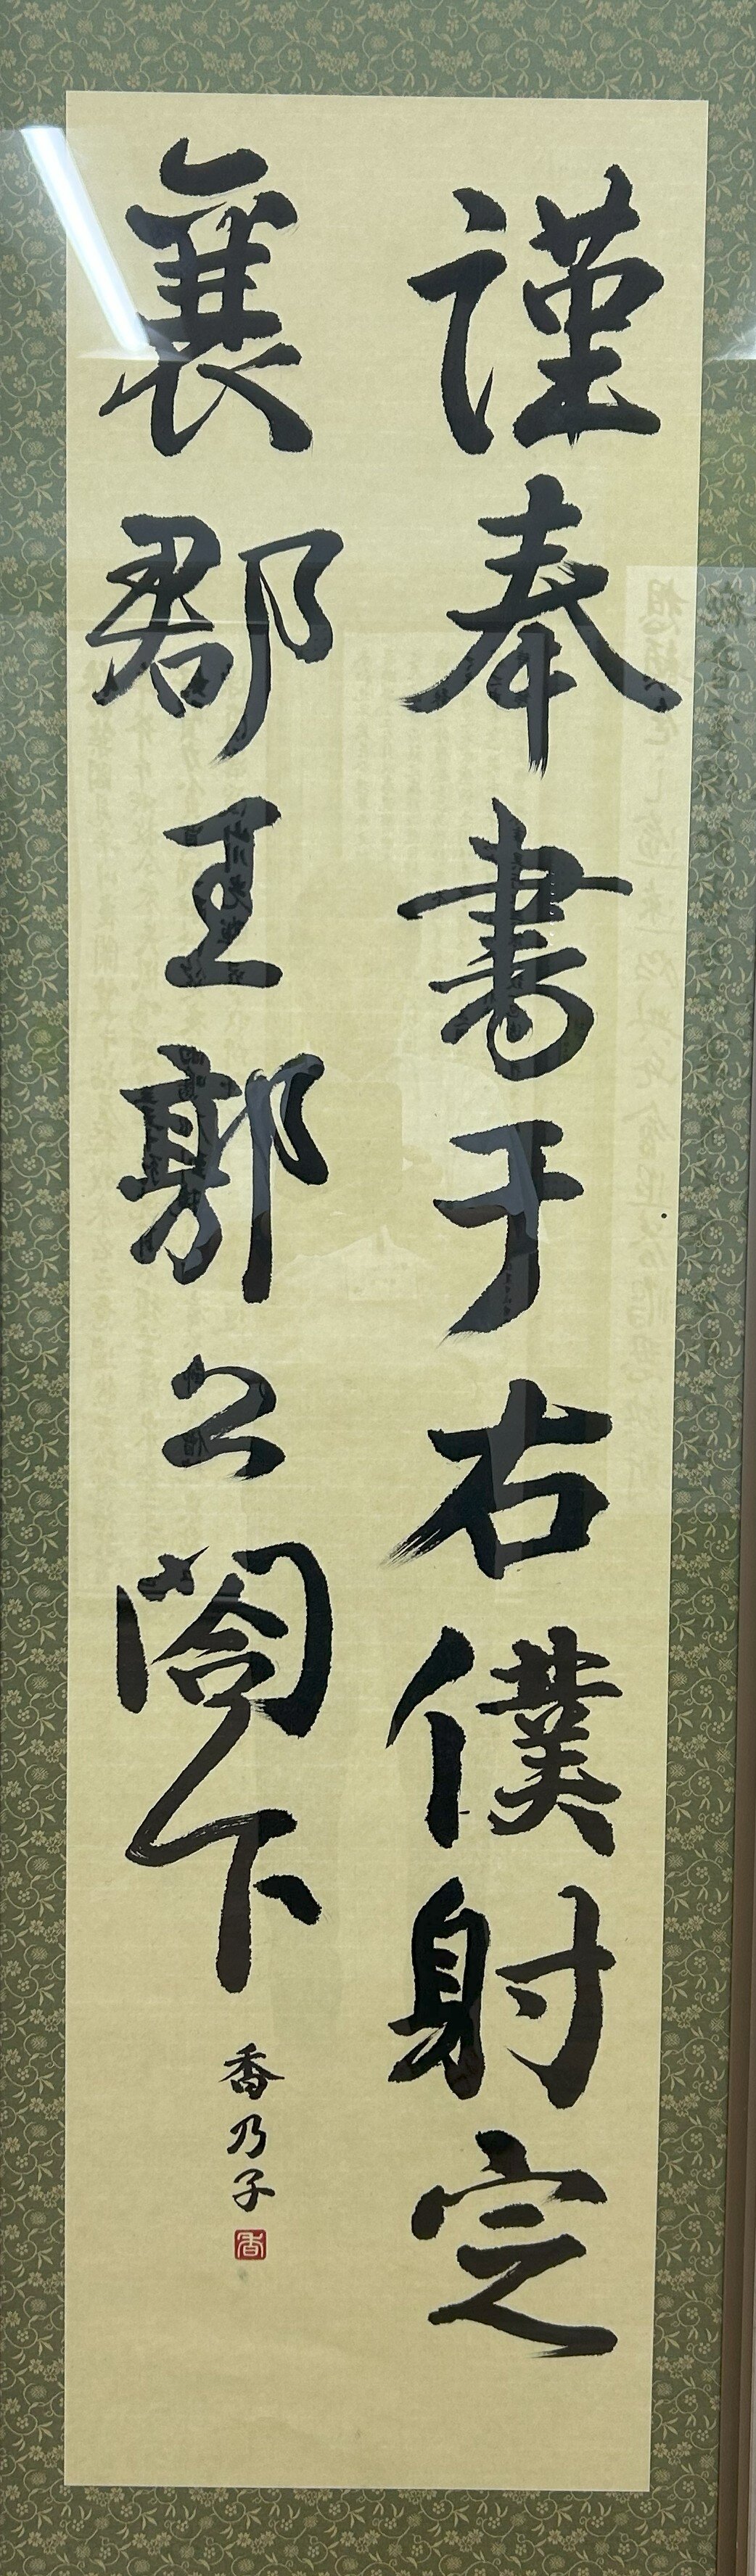 謹奉書于右僕射定
襄郡王郭公閤下
香乃子
香